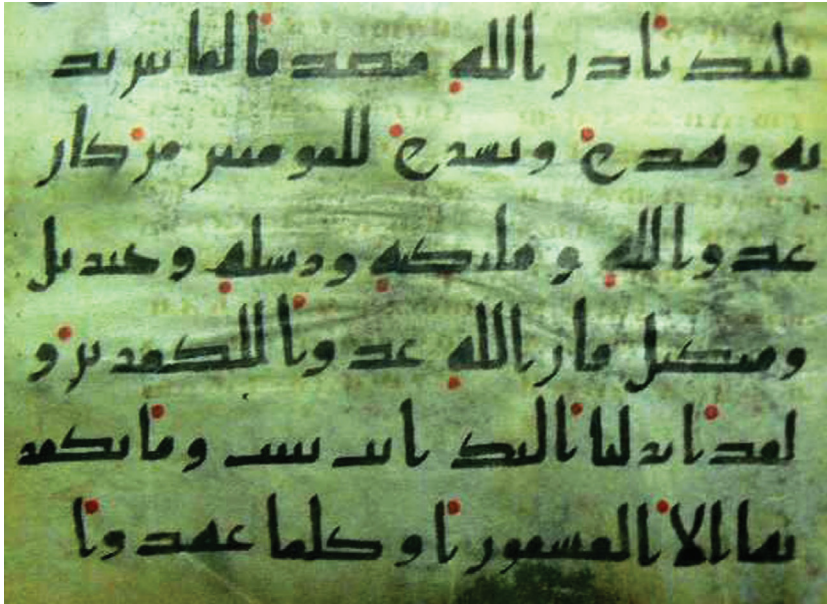 قلبك باذن الله مصدقا لما بين يد
يه وهدى وبشرى للمومنين من كان
عدوا لله وملئكته ورسله وجبريل
وميكيل فان الله عدوا للكفرين و
لقد انزلنا اليك ايت بينت وما يكفر
بها الا الفسقون او كلما عهدوا